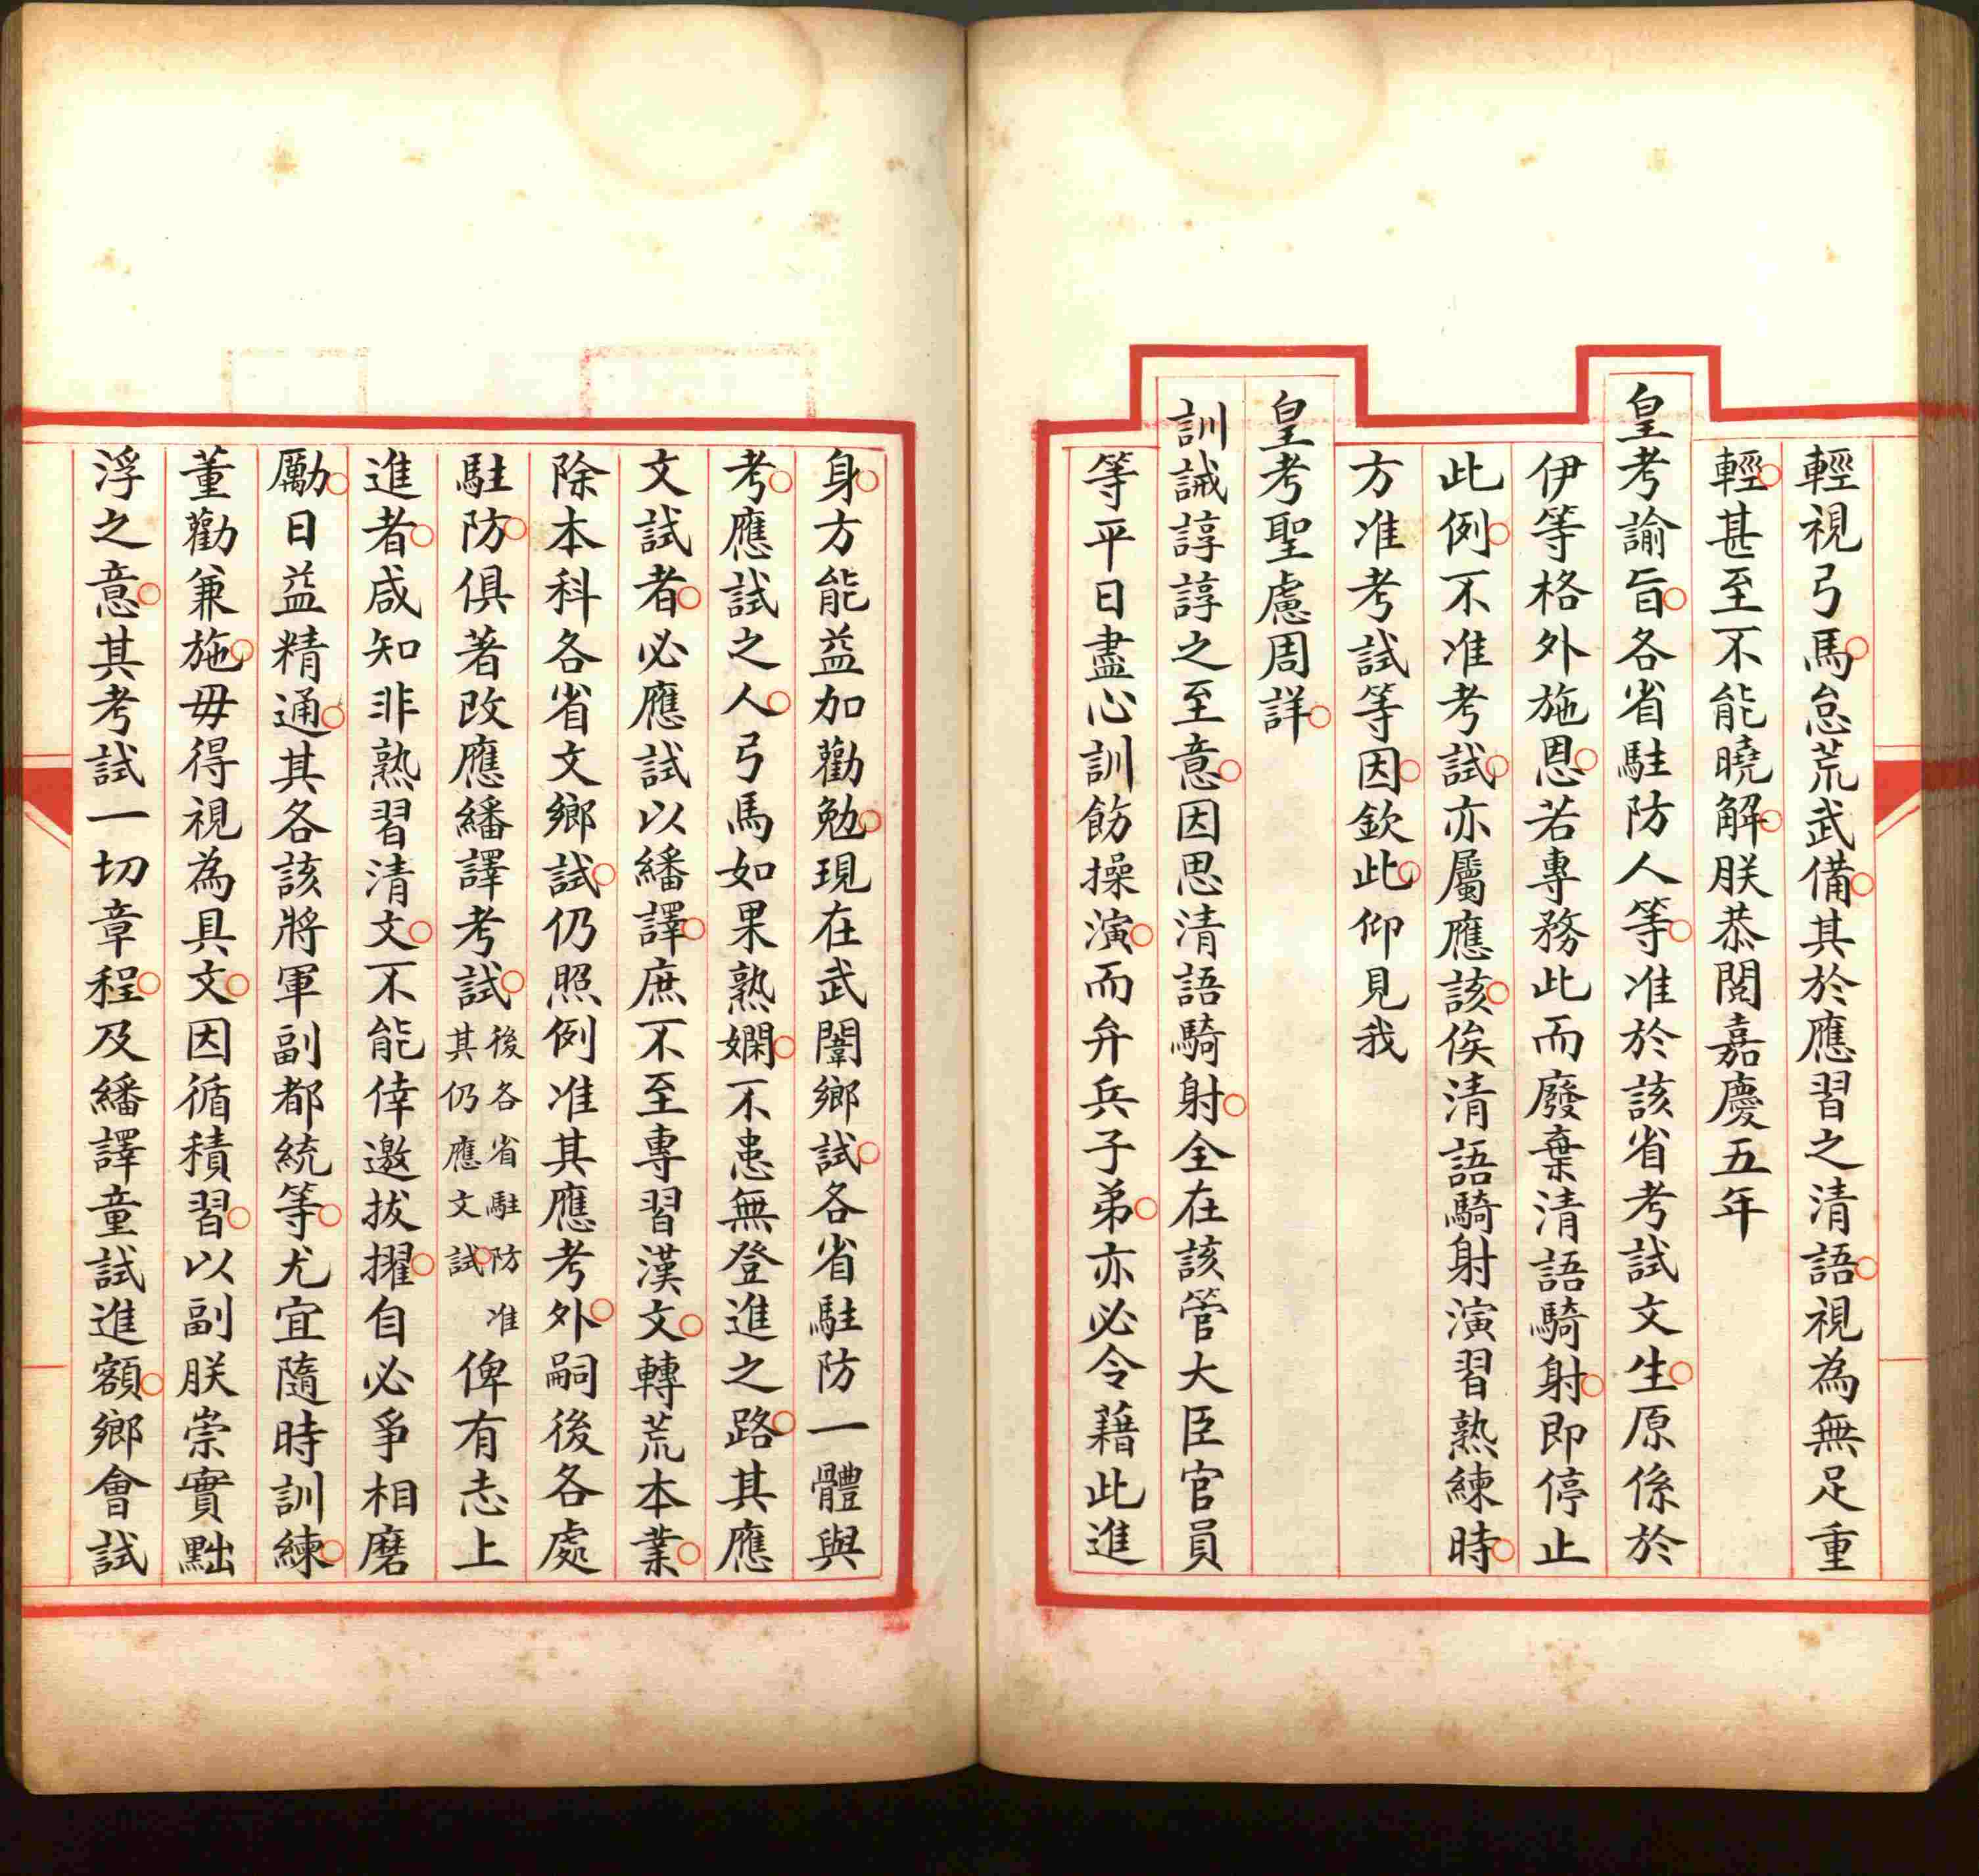 輕視弓馬怠荒武備其於應習之清語視為無足重
輕甚至不能曉解朕恭閱嘉慶五年
皇考諭旨各省駐防人等准於該省考試文生原係於
伊等格外施恩若專務此而廢棄清語騎射即停止
此例不准考試亦屬應該俟清語騎射演習熟練時
方准考試等因欽此仰見我
皇考聖慮周詳
訓誡諄諄之至意因思清語騎射全在該管大臣官員
等平日盡心訓飭操演而弁兵子弟亦必令藉此進
身方能益加勸勉現在武闈鄉試各省駐防一體與
考應試之人弓馬如果熟嫻不患無登進之路其應
文試者必應試以繙譯庶不至專習漢文轉荒本業
除本科各省文鄉試仍照例准其應考外嗣後各處
駐防俱著改應繙譯考試後各省駐防准其仍應文試俾有志上
進者咸知非熟習清文不能倖邀拔擢自必爭相磨
勵日益精通其各該將軍副都統等尤宜隨時訓練
董勸兼施毋得視為具文因循積習以副朕崇實黜
浮之意其考試一切章程及繙譯童試進額鄉會試